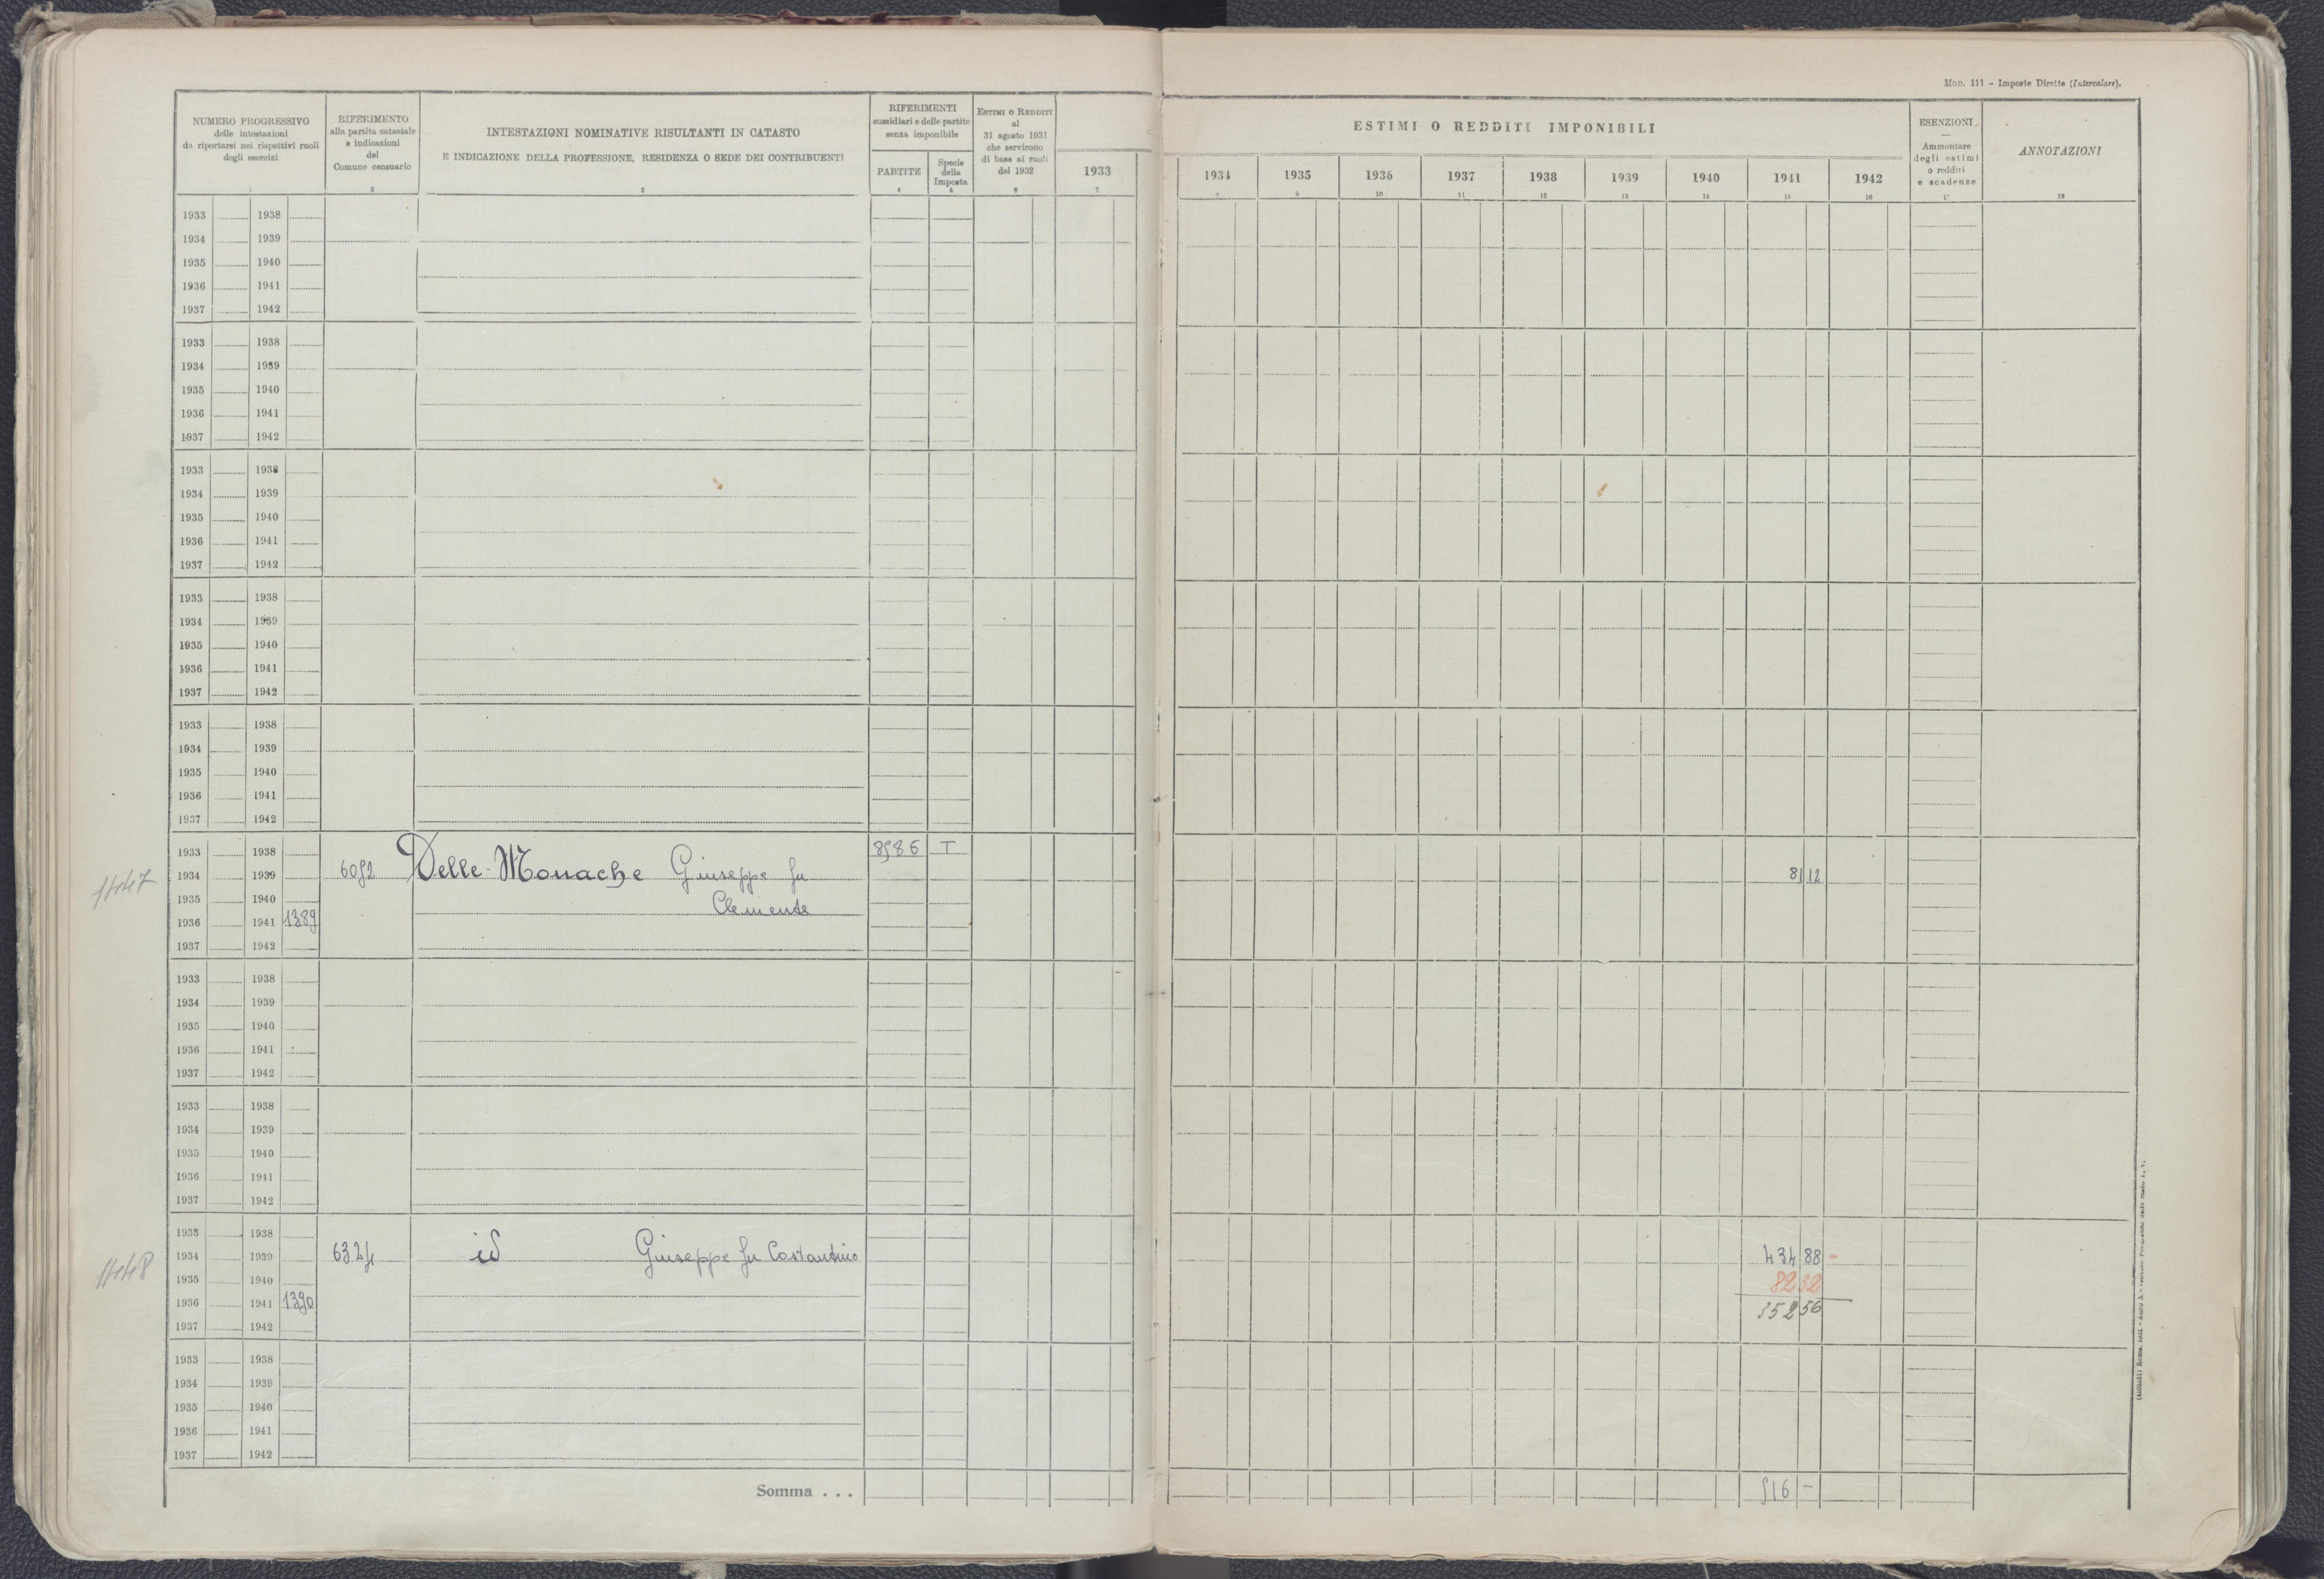 Mod. 111 - Imposte Dirette (Intercalare).
NUMERO PROGRESSIVO
delle intestazioni
da riportarsi nei rispettivi ruoli
degli esercizi
1
RIFERIMENTO
alla partita catastale
e indicazioni
del
Comune censuario
2
INTESTAZIONI NOMINATIVE RISULTANTI IN CATASTO
E INDICAZIONE DELLA PROFESSIONE, RESIDENZA O SEDE DEI CONTRIBUENTI
3
RIFERIMENTI
sussidiari e delle partite
senza imponibile
PARTITE
4
Specie
della
Imposta
5
ESTIMI O REDDITI
al
31 agosto 1931
che servirono
di base ai ruoli
del 1932
6
1933
7
ESTIMI O REDDITI IMPONIBILI
1934 1935 1936 1937 1938 1939 1940 1941 1942
8 9 10 11 12 13 14 15 16
ESENZIONI
Ammontare
degli estimi
o redditi
e scadenze
17
ANNOTAZIONI
18
1933 1938
1934 1939
1935 1940
1936 1941
1937 1942
1933 1938
1934 1939
1935 1940
1936 1941
1937 1942
1933 1938
1934 1939
1935 1940
1936 1941
1937 1942
1933 1938
1934 1939
1935 1940
1936 1941
1937 1942
1933 1938
1934 1939
1935 1940
1936 1941
1937 1942
1933 1938 8586 T
1934 1939 6092 Delle Monache Giuseppe fu 81 12
1935 1940 Clemente
1936 1941 1389
1937 1942
1933 1938
1934 1939
1935 1940
1936 1941
1937 1942
1933 1938
1934 1939
1935 1940
1936 1941
1937 1942
1933 1938
1934 1939 6324 id Giuseppe fu Costantino 434 88 -
1935 1940 82 32
1936 1941 1390 352 56
1937 1942
1933 1938
1934 1939
1935 1940
1936 1941
1937 1942
Somma . . . 516 -